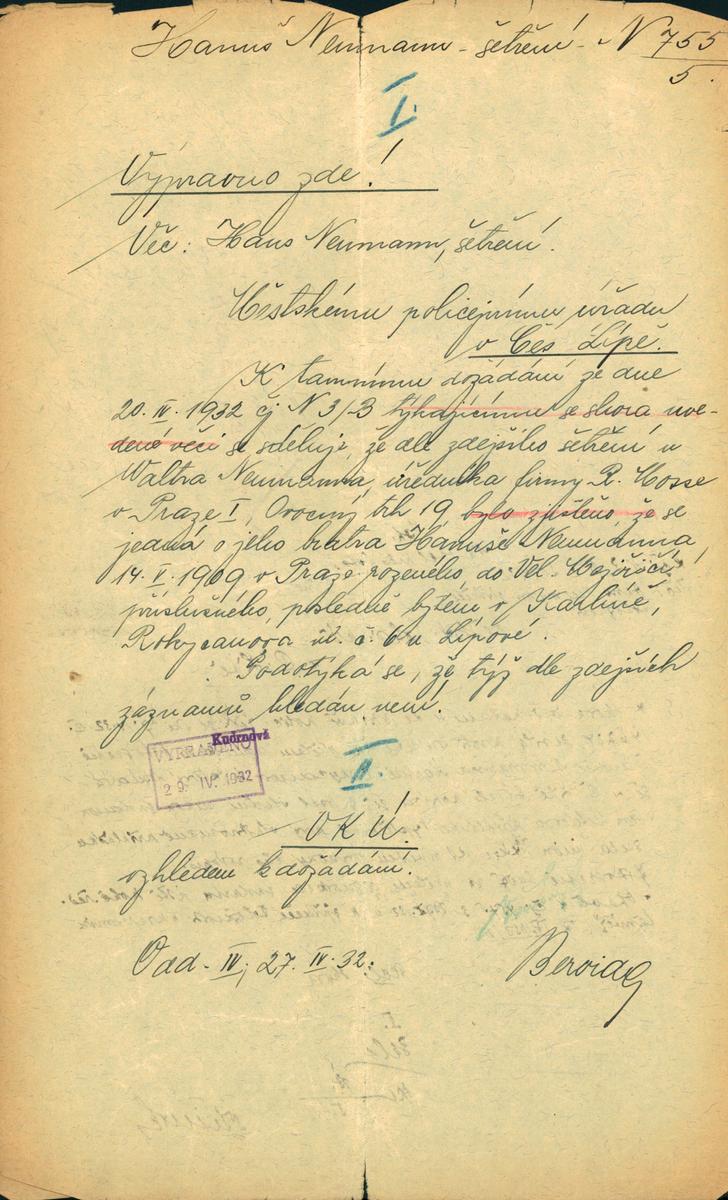 Hanuš Neumann - šetření - N 755/5.
I.
Výpravno zde!
Věc: Hans Neumann, šetření.
Městskému policejnímu úřadu
v Čes. Lípě.
K tamnímu dožádání ze dne
20. IV. 1932 čj N 3/-B týkajícímu se shora uve-
dené věci se sděluje, že dle zdejšího šetření u
Waltra Neumanna, úředníka firmy R. Mosse
v Praze I, Ovocný trh 19 bylo zjištěno, že se
jedná o jeho bratra Hanuše Neumanna,
14. V. 1909 v Praze rozeného, do Vel.
příslušného, posledně bytem v Karlíně,
Rokycanova ul. č. 6 u Lípové.
Podotýká se, že týž dle zdejších
záznamů hledán není.
Kudrnová
VYPRAVENO
29. IV. 1932
II.
O K Ú.
vzhledem k dožádání.
Odd. IV, 27. IV. 32.